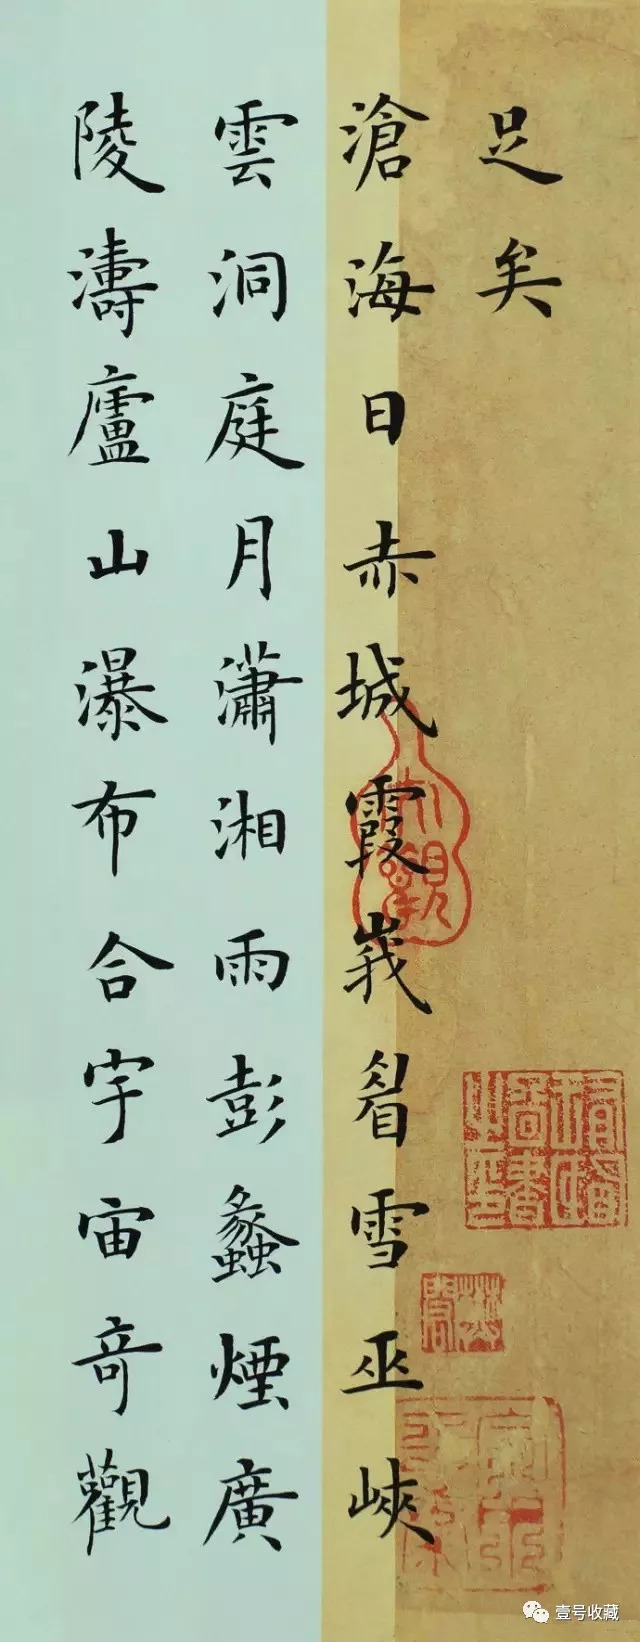 足矣
滄海日赤城霞峩眉雪巫峽
雲洞庭月瀟湘雨彭蠡煙廣
陵濤廬山瀑布合宇宙奇觀
壹号收藏